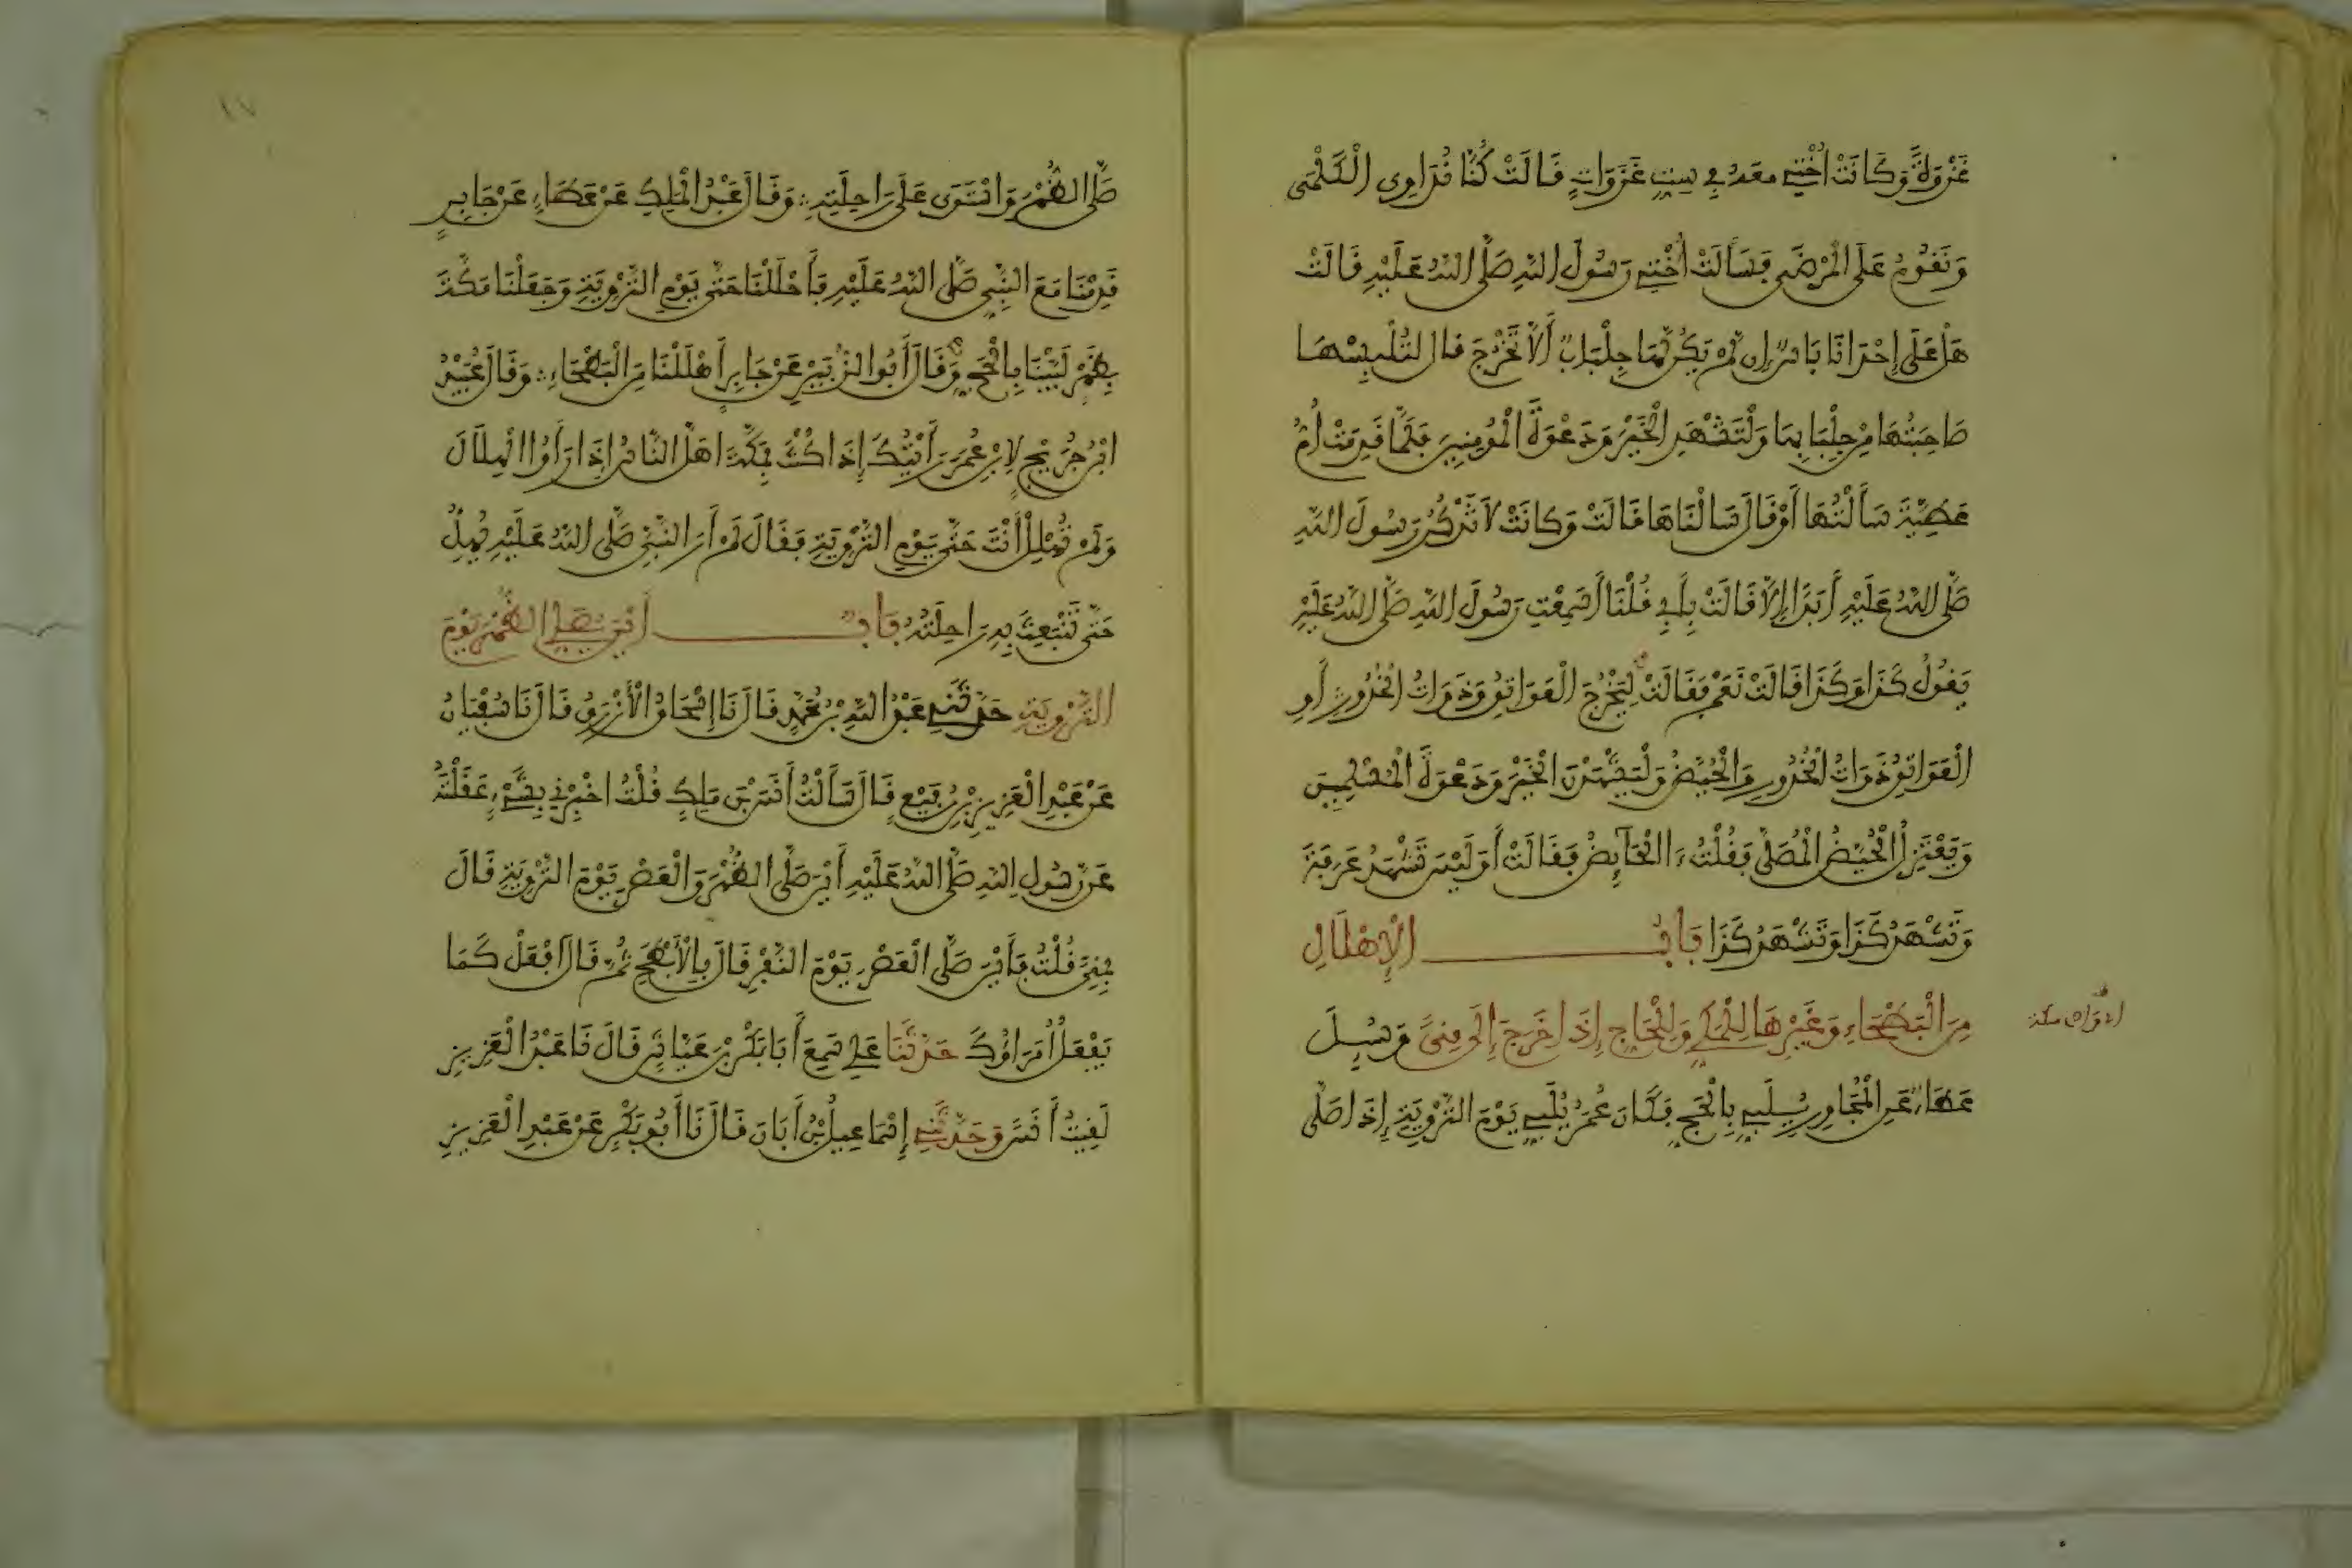 غَزْوَةً وَكَانَتْ أُخْتِي مَعَهُ فِي سِتِّ غَزَوَاتٍ قَالَتْ كُنَّا نُدَاوِي الْكَلْمَى
وَنَقُومُ عَلَى الْمَرْضَى فَسَأَلَتْ أُخْتِي رَسُولَ اللَّهِ صَلَّى اللَّهُ عَلَيْهِ قَالَتْ
هَلْ عَلَى إِحْدَانَا بَاسٌ إِن لَّمْ يَكُن لَّهَا جِلْبَابٌ أَلَّا تَخْرُجَ قال لتُلْبِسْهَا
صَاحِبَتُهَا مِن جِلْبَابِهَا وَلْتَشْهَدِ الْخَيْرَ وَدَعْوَةَ الْمُومِنِينَ فَلَمَّا قَدِمَتْ أُمُّ
عَطِيَّةَ سَأَلْتُهَا أَوْ قَالَ سَالْنَاهَا قَالَتْ وَكَانَتْ لَا تَذْكُرُ رَسُولَ اللَّهِ
صَلَّى اللَّهُ عَلَيْهِ أَبَدًا إِلَّا قَالَتْ بِأَبِي فُلْنَا أَسَمِعْتِ رَسُولَ اللَّهِ صَلَّى اللَّهُ عَلَيْهِ
يَقُولُ كَذَا وَكَذَا قَالَتْ نَعَمْ فَقَالَتْ لِتَخْرُجَ الْعَوَاتِقُ وَذَوَاتُ الْخُدُورِ أَوِ
الْعَوَاتِقُ ذَوَاتُ الْخُدُورِ وَالْحُيَّضُ وَلْيَشْهَدْنَ الْخَيْرَ وَدَعْوَةَ الْمُسْلِمِينَ
وَيَعْتَزِلُ الْحُيَّضُ الْمُصَلَّى فَقُلْتُ ءَالْحَآئِضُ فَقَالَتْ أَوَلَيْسَ تَشْهَدُ عَرَفَةَ
وَتَشْهَدُ كَذَا وَتَشْهَدُ كَذَا بَابُ الْإِهْلَالِ
مِنَ الْبَطْحَاءِ وَغَيْرِهَا لِلْمَكِّي وَلِلْحَاجِّ إِذَا خَرَجَ إِلَى مِنىً وَسُئِلَ
عَطَاءٌ عَنِ الْمُجَاوِرِ يُلَبِّي بِالْحَجِّ فَكَانَ عُمَرُ يُلَبِّي يَوْمَ التَّرْوِيَةِ إِذَا صَلَّى
صَلَّى الظُّهْرَ وَاسْتَوَى عَلَى رَاحِلَتِهِ وَقَالَ عَبْدُ الْمَلِكِ عَنْ عَطَاءٍ عَنْ جَابِرٍ
قَدِمْنَا مَعَ النَّبِيِّ صَلَّى اللَّهُ عَلَيْهِ فَأَحْلَلْنَا حَتَّى يَوْمِ التَّرْوِيَةِ وَجَعَلْنَا مَكَّةَ
بِظَهْرٍ لَبَّيْنَا بِالْحَجِّ وَقَالَ أَبُو الزُّبَيْرِ عَنْ جَابِرٍ أَهْلَلْنَا مِنَ الْبَطْحَاءِ وَقَالَ عُبَيْدُ
ابْنُ جُرَيْجٍ لِابْنِ عُمَرَ رَأَيْتُكَ إِذَا كُنْتَ بِمَكَّةَ اهَلَّ النَّاسُ إِذَا رَأَوُا الْهِلَالَ
وَلَمْ تُهْلِلْ أَنْتَ حَتَّى يَوْمِ التَّرْوِيَةِ فَقَالَ لَمْ أَرَ النَّبِيَّ صَلَّى اللَّهُ عَلَيْهِ يُهِلُّ
حَتَّى تَنْبَعِثَ بِهِ رَاحِلَتُهُ بَابُ أَيْنَ يُصَلِّي الظُّهْرَ يَوْمَ
التَّرْوِيَةِ حَدَّثَنِي عَبْدُ اللَّهِ بْنُ مُحَمَّدٍ قَالَ نَا إِسْحَاقُ الْأَزْرَقُ قَالَ نَا سُفْيَانُ
عَنْ عَبْدِ الْعَزِيزِ بْنِ رُفَيْعٍ قَالَ سَأَلْتُ أَنَسَ بْنَ مَلِكٍ قُلْتُ اخْبِرْنِي بِشَيْءٍ عَقَلْتَهُ
عَن رَّسُولِ اللَّهِ صَلَّى اللَّهُ عَلَيْهِ أَيْنَ صَلَّى الظُّهْرَ وَالْعَصْرَ يَوْمَ التَّرْوِيَةِ قَالَ
بِمِنىً قُلْتُ فَأَيْنَ صَلَّى الْعَصْرَ يَوْمَ النَّفْرِ قَالَ بِالْأَبْطَحِ ثُمَّ قَالَ افْعَلْ كَمَا
يَفْعَلُ أُمَرَاؤُكَ حَدَّثَنَا عَلِي سَمِعَ أَبَا بَكْرِ بْنَ عَيَّاشٍ قَالَ نَا عَبْدُ الْعَزِيزِ
لَقِيتُ أَنَسًا وَحَدَّثَنِي إِسْمَاعِيلُ بْنُ أَبَانَ قَالَ نَا أَبُو بَكْرٍ عَنْ عَبْدِ الْعَزِيزِ